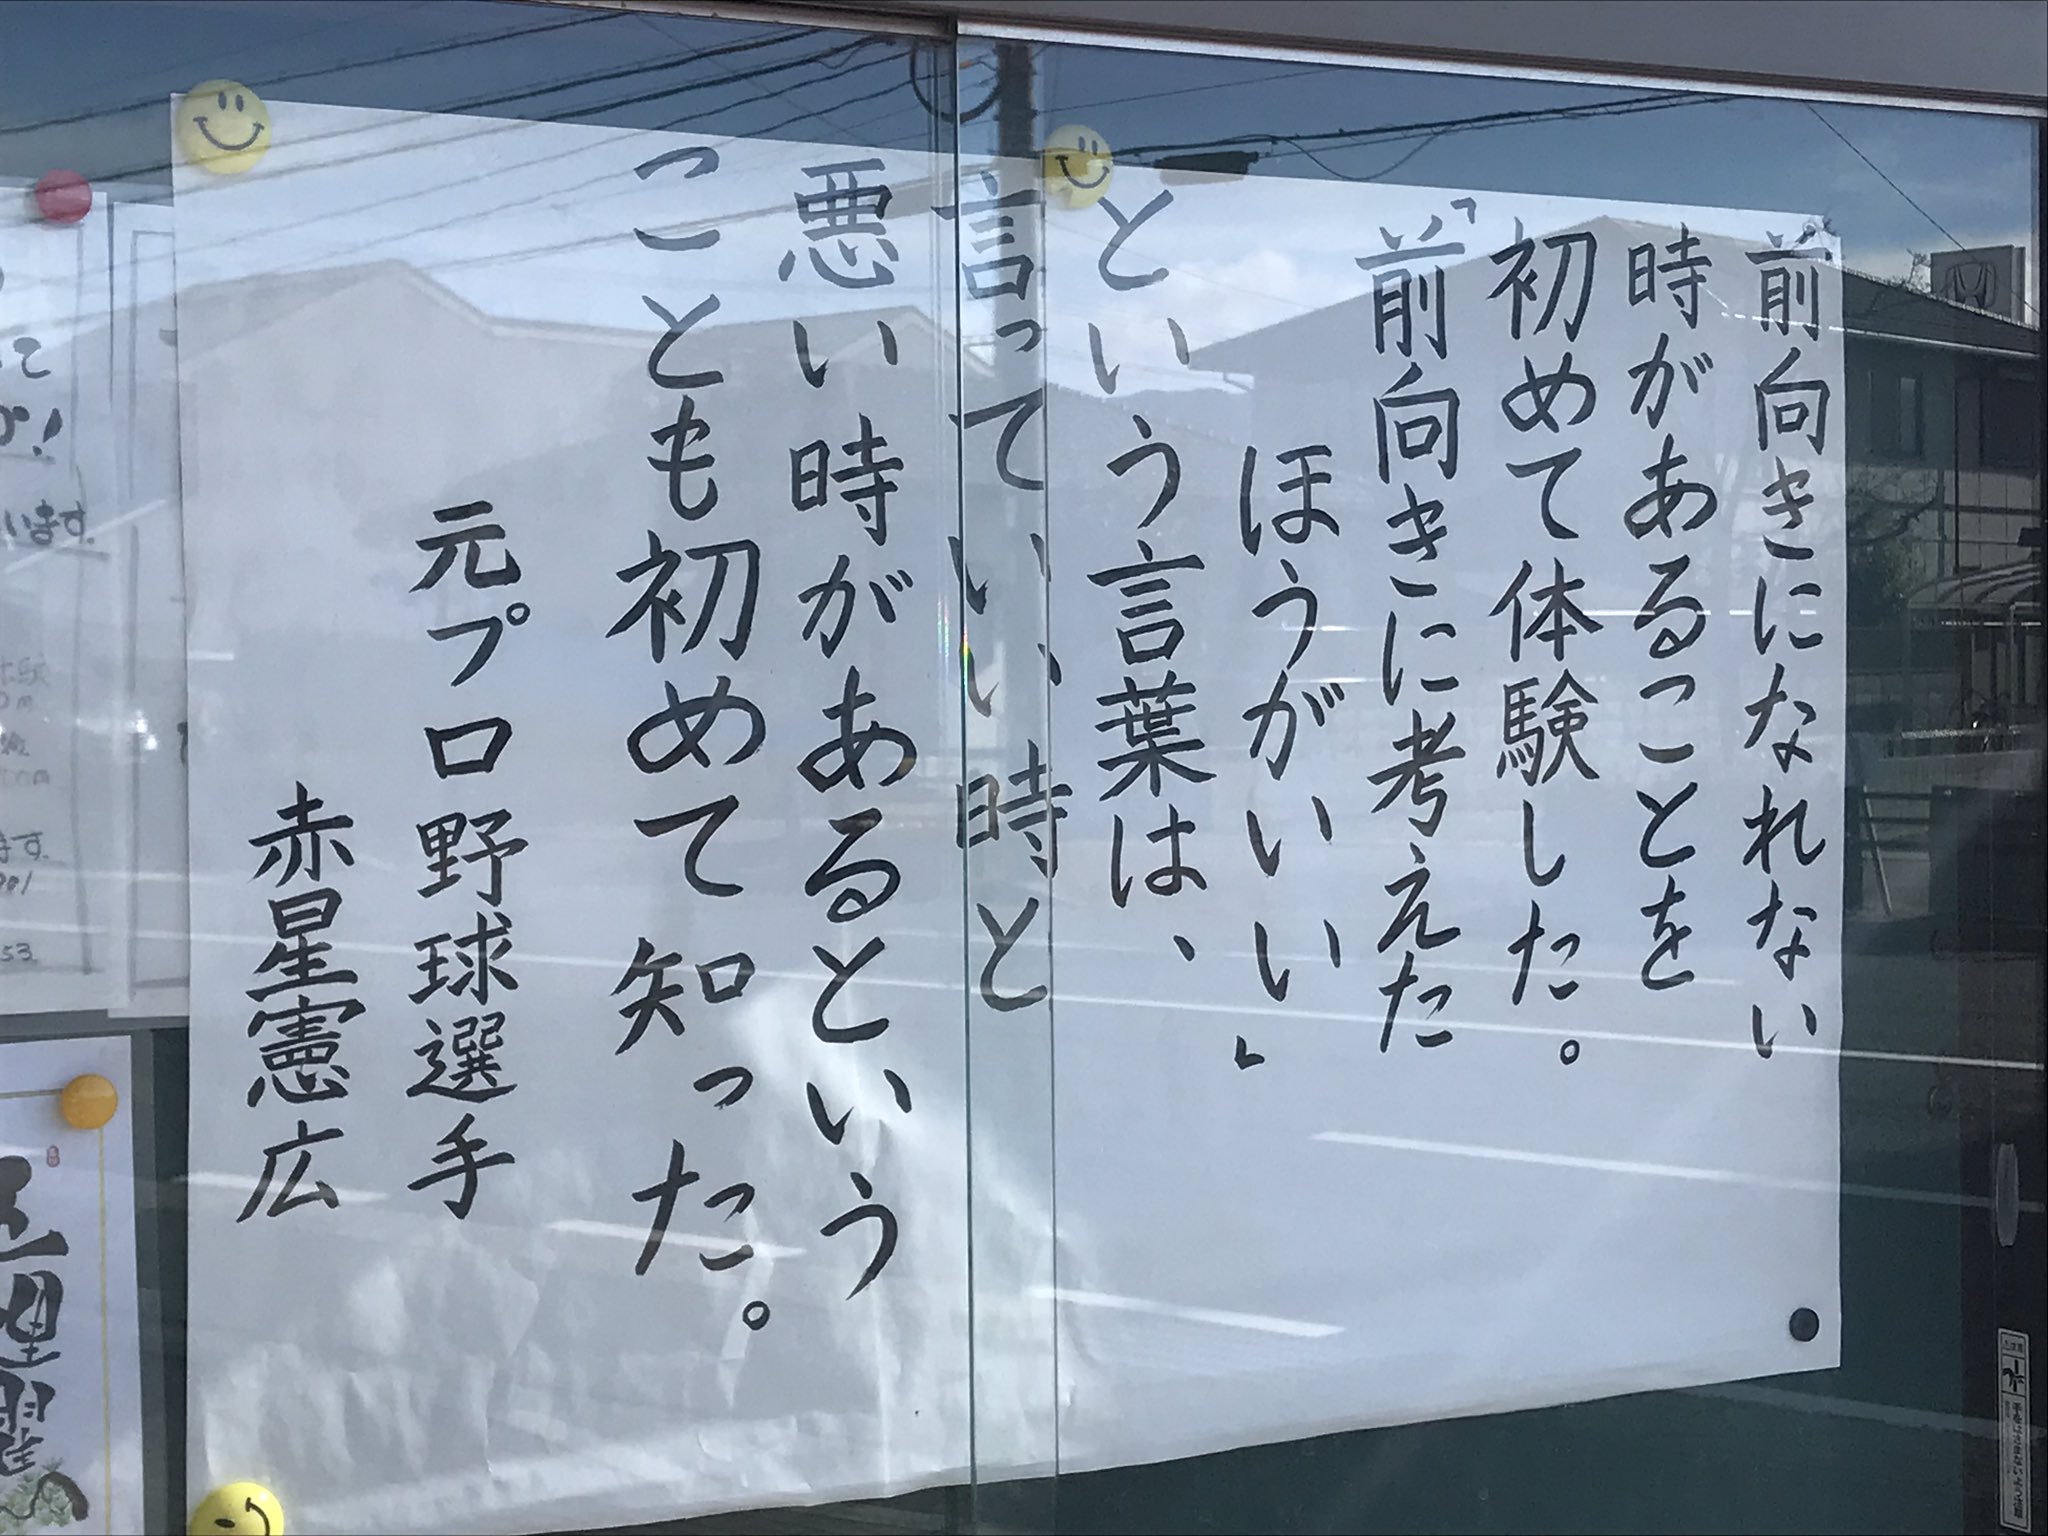 前向きになれない
時があることを
初めて体験した。
「前向きに考えた
ほうがいい」
という言葉は、
言っていい時と
悪い時があるという
ことも初めて知った。
元プロ野球選手
赤星憲広
います。
ます。
53